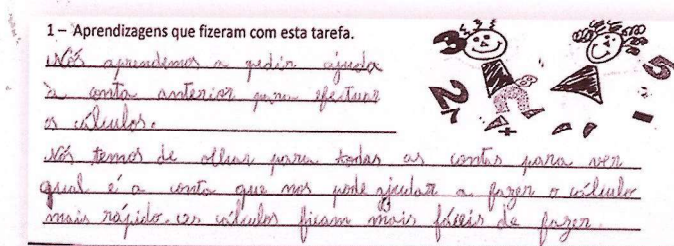 1 – Aprendizagens que fizeram com esta tarefa.
Nós aprendemos a pedir ajuda
à conta anterior para efectuar
os cálculos.
Nós temos de olhar para todas as contas para ver
qual é a conta que nos pode ajudar a fazer o cálculo
mais rápido. os cálculos ficam mais fáceis de fazer.
3
2
5
7
+